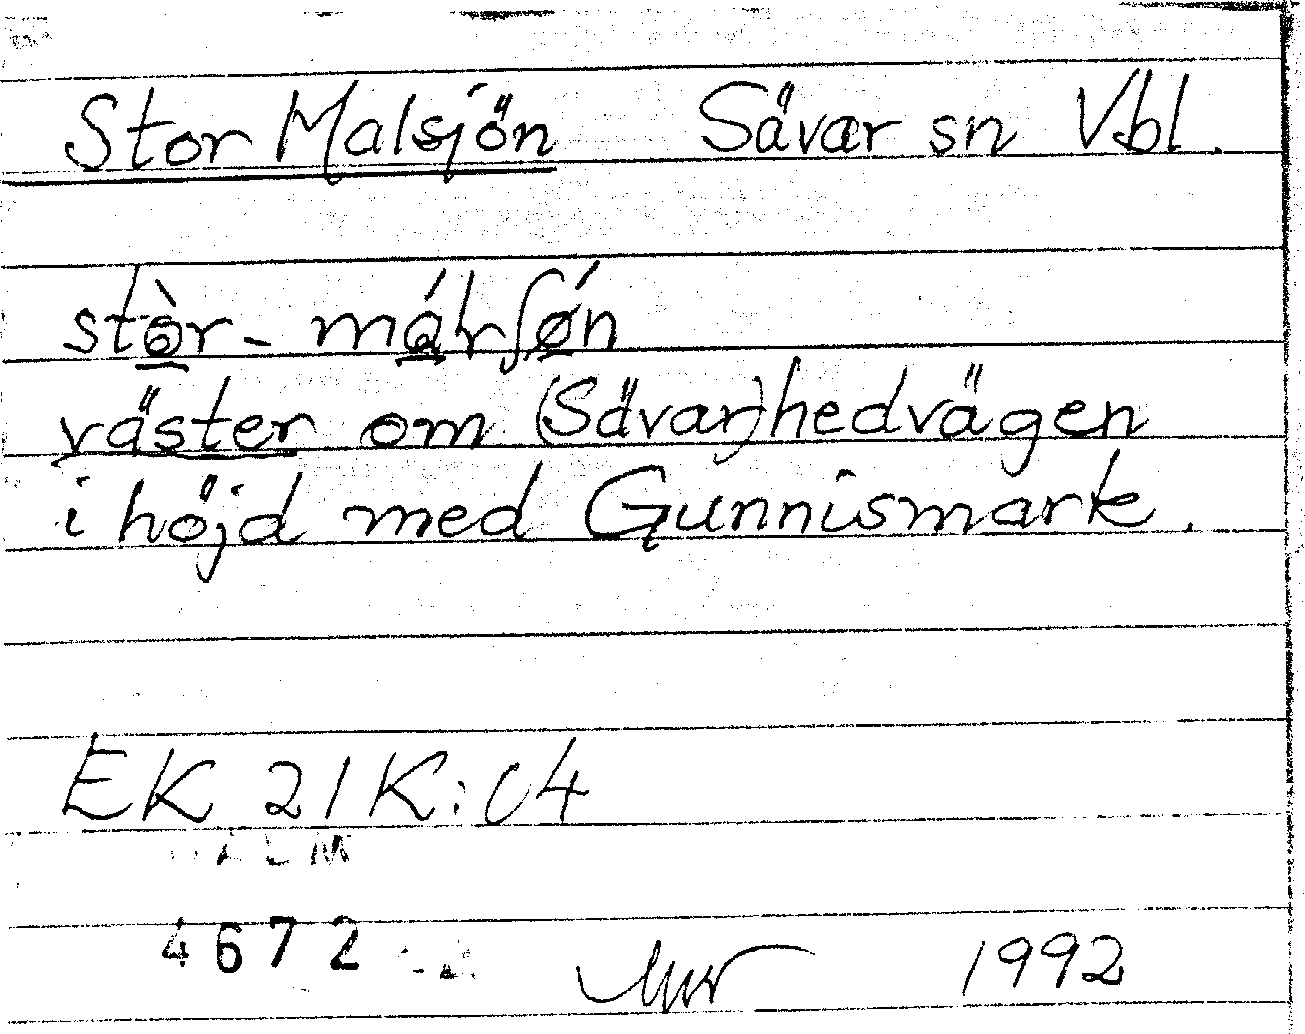 Stor Malsjön Sävar sn Vbl.
väster om (Sävar)hedvägen
i höjd med Gunnismark.
EK 21K:04
4672 1992